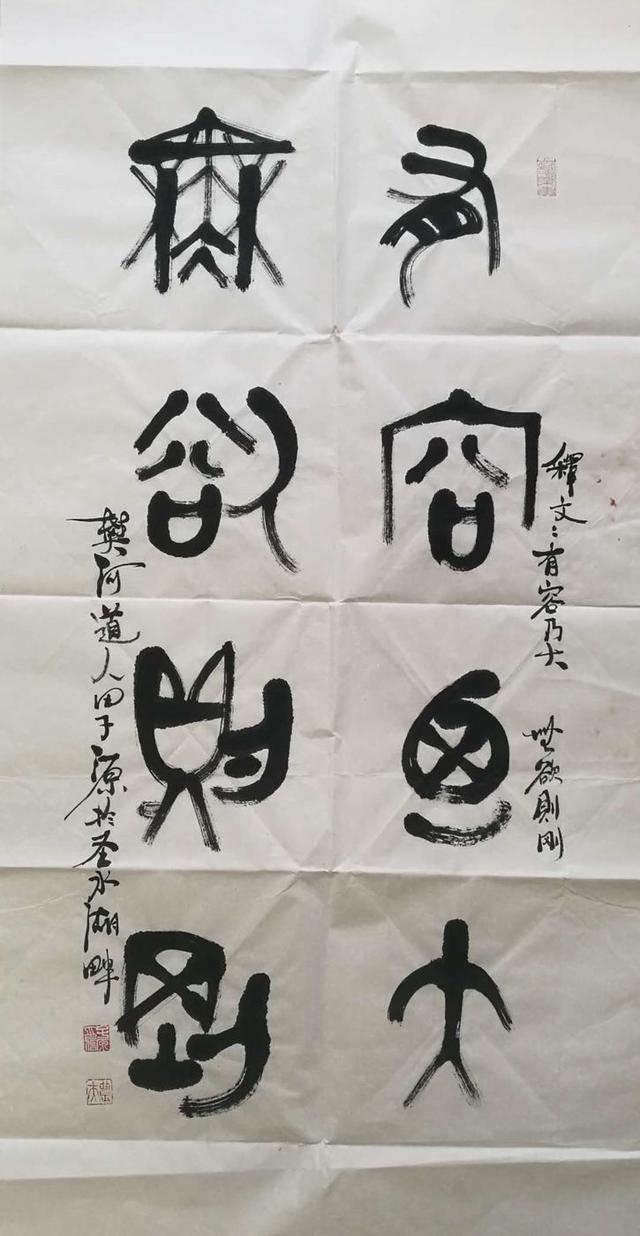 釋文：有容乃大 無欲則剛
有容乃大
無欲則剛
樊河道人田子源於圣水湖畔